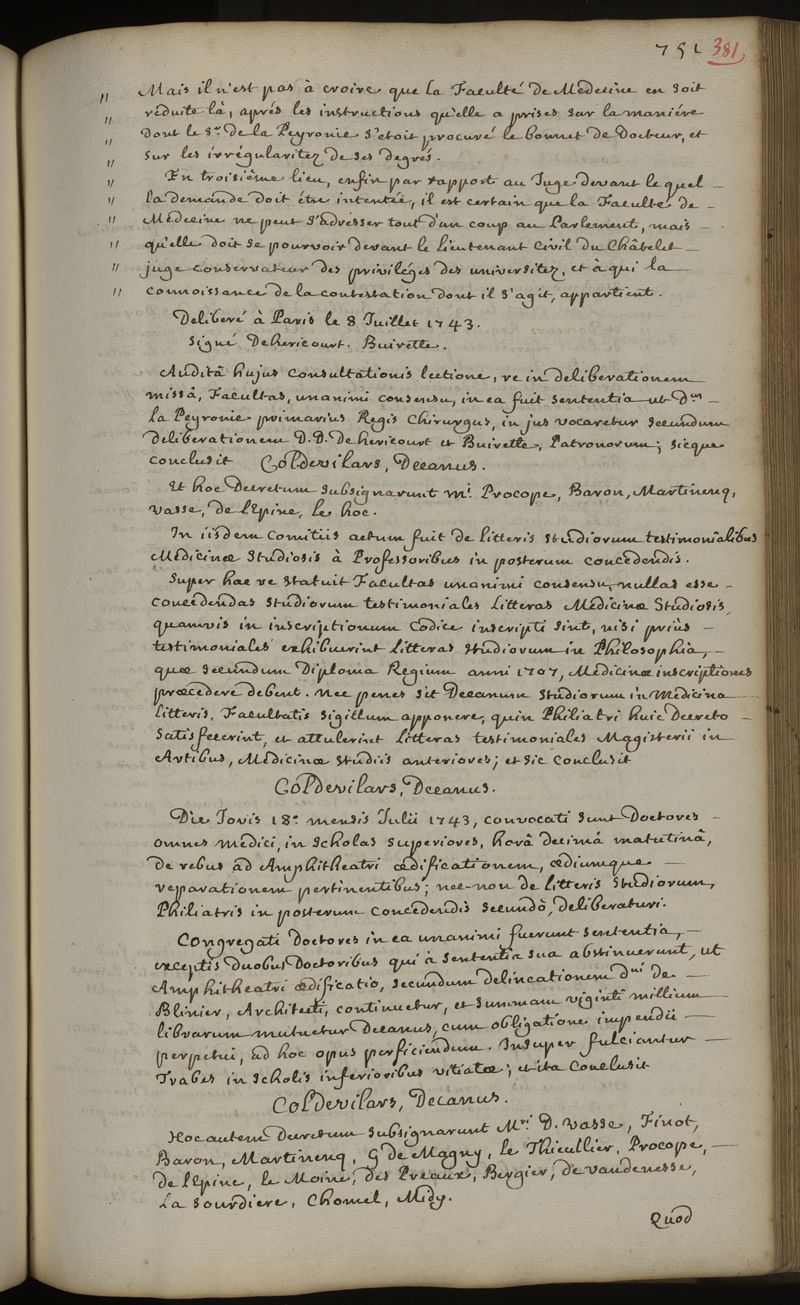 751 381
" Mais il n'est pas à croire que la Faculté de Médecine en soit
" réduite là, aprés les instructions qu'elle a prises sur la maniére
" dont le Sr. de la Peyronie s'etoit procuré le bonnet de Docteur, et
" sur les irrégularitez de ses degrés.
" En troisiéme lieu, enfin par rapport au Juge devant lequel
" la demande doit étre intentée, il est certain que la Faculté de
" Médecine ne peut s'adresser tout d'un coup au Parlement, mais
" qu'elle doit se pourvoir devant le Lieutenant Civil du Châtelet
" juge conservateur des priviléges des universitez, et à qui la
" connoissance de la contestation dont il s'agit, appartient.
Deliberé à Paris le 8 Juillet 1743.
Signé Dehericourt. Buirette.
Auditâ hujus consultationis lectione, re in deliberationem
missâ, Facultas, unanimi consensu, in ea fuit sententia ut Dnus
la Peyronie primarius Regis Chirurgus, in jus vocaretur secundum
deliberationem D.D. De hericourt et Buirette, Patronorum; sicque
conclusit Col Devilars, Decanus.
Et hoc Decretum subsignarunt Mi. Procope, Baron, Martinenq,
Vasse, de l'Epine, le hoc.
In iisdem Comitiis actum fuit de litteris studiorum testimonialibus
Medicinæ Studiosis à Professoribus in posterum concedendis.
Super hac re statuit Facultas unanimi consensu, nullas esse
concedendas studiorum testimoniales Litteras Medicinæ Studiosis,
quamvis in inscriptionum Codice inscripti sint, nisi priùs
testimoniales exhibuerint Litteras studiorum in Philosophia,
quæ secundum Diploma Regium anni 1707, Medicinæ inscriptiones
præcedere debent. Nec penes sit Decanum studiorum in Medicina
Litteris, Facultatis sigillum apponere, quin Philiatri huic Decreto
satisfecerint, et attulerint Litteras testimoniales Magisterii in
Artibus, Medicinæ studiis anteriores; et sic conclusit
Col Devilars, Decanus.
Die Jovis 18a. mensis Julii 1743, convocati sunt Doctores
omnes medici, in Scholas superiores, horâ decimâ matutinâ,
de rebus ad Amphitheatri ædificationem, ædiumque
reparationem pertinentibus; nec-non de litteris Studiorum,
Philiatris in posterum concedendis secundò, deliberaturi.
Congregati Doctores in ea unanimi fuerunt sententia,
exceptis duobus Doctoribus qui à sententia sua abstinuerunt, ut
Amphitheatri ædificatio, secundum delineationem Dni de
Blinier, Architecti, continuetur, et summam viginti millium
librarum mutuetur Decanus, cum obligatione impendii
perpetui, ad hoc opus perficiendum. Insuper fulciantur
Trabes in scholis inferioribus vitiatæ; et ita conclusit
Col Devilars, Decanus.
Hoc autem Decretum subsignarunt Mri. D. Vasse, Finot,
Baron, Martinenq, G de Magny, le Thieullier, Procope,
de l'Epine, le Moine, des Preaux, Bergier, de vandenesse,
La Sourdiere, Chomel, Midy.
Quod